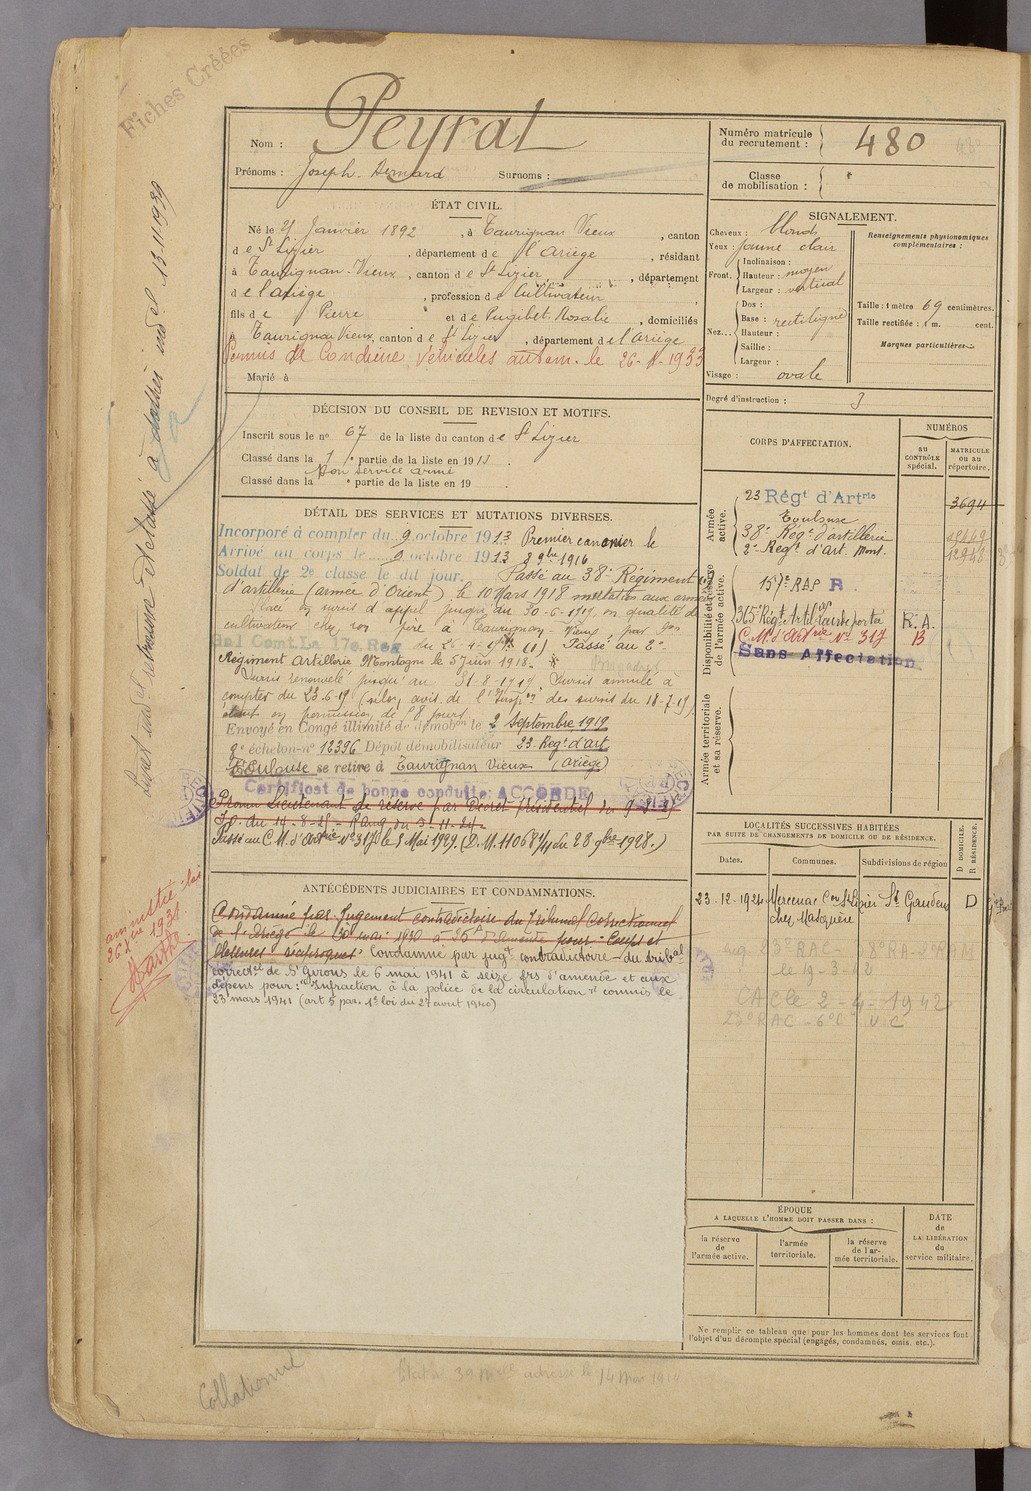 Fiches Créées
Peyrat
Nom :
Prénoms : Joseph Bernard Surnoms :
Numéro matricule
du recrutement : 480
Classe
de mobilisation :
ÉTAT CIVIL.
Né le 21 Janvier 1892, à Taurignan Vieux, canton
de St Lizier, département de l'Ariège, résidant
à Taurignan-Vieux, canton de St Lizier, département
de l'Ariège, profession de Cultivateur
fils de Pierre et de Pugibet Rosalie, domiciliés
à Taurignan Vieux, canton de St Lizier, département de l'Ariège
Permis de Conduire Véhicules autom. le
Marié à
SIGNALEMENT.
Cheveux : blonds
Yeux : jaune clair
Front. Inclinaison :
Hauteur : moyen
Largeur : vertical
Nez... Dos :
Base : rectiligne
Hauteur :
Saillie :
Largeur :
Visage : ovale
Renseignements physionomiques
complémentaires :
Taille : 1 mètre 69 centimètres.
Taille rectifiée : 1 m. cent.
Marques particulières.
Degré d'instruction : 3
DÉCISION DU CONSEIL DE REVISION ET MOTIFS.
Inscrit sous le no 67 de la liste du canton de St Lizier
Classé dans la 1e partie de la liste en 1913.
Bon service armé
Classé dans la e partie de la liste en 19 .
DÉTAIL DES SERVICES ET MUTATIONS DIVERSES.
Incorporé à compter du 9 octobre 1913 Premier canonnier le
Arrivé au corps le 9 octobre 1913 9bre 1916
Soldat de 2e classe le dit jour. Passé au 38e Régiment
d'artillerie (armée d'Orient) le 10 Mars 1918 mutation aux armées
Placé en sursis d'appel jusqu'au 30-6-1919 en qualité de
cultivateur chez son père à Taurignan-Vieux par
Gal Comt La 17e Rég (1) Passé au 2e
Régiment Artillerie Montagne le 5 juin 1918.
Sursis renouvelé jusqu'au 31-8-1919. Sursis annulé à
compter du 23.6.19 (selon avis de l'Insp. des sursis du 18-7-19)
étant en permission de 8 jours
Envoyé en Congé illimité de démobon le 2 Septembre 1919
9e échelon-no 12396 Dépôt démobilisateur 23e Regt d'art
Toulouse se retire à Taurignan Vieux (Ariège)
Certificat de bonne conduite: ACCORDÉ
Promu Lieutenant de réserve par Décret présidentiel du
J.O. du 14-8-25 - Rang du 3-11-24
Passé au C.M. d'Artrie no 317 le 8 Mai 1929. (D.M. 11068 1/1 du 28 9bre 1928.)
ANTÉCÉDENTS JUDICIAIRES ET CONDAMNATIONS.
Condamné par Jugement contradictoire du Tribunal Correctionnel
de l'Ariège le 30 mai 1930 à 25f d'amende pour : Coups et
blessures réciproques. Condamné par jugt contradictoire du tribal
correctel de St Girons le 6 mai 1941 à seize frs d'amende et aux
dépens pour : "Infraction à la police de la circulation" commis le
23 mars 1941 (art 5 par. 1er loi du 27 aout 1940)
CORPS D'AFFECTATION.
NUMÉROS
au
CONTRÔLE
spécial.
MATRICULE
ou au
répertoire.
Armée
active.
23 Régt d'Artrie 3694
Toulouse
38e Régt d'artillerie
2e Regt d'Art. Mont.
Disponibilité et réserve
de l'armée active.
157e RAP R
365e Régt Artillie Lourde portée R.A.
C.M. d'Artrie no 317 B
Sans Affectation
Armée territoriale
et sa réserve.
LOCALITÉS SUCCESSIVES HABITÉES
PAR SUITE DE CHANGEMENTS DE DOMICILE OU DE RÉSIDENCE.
Dates. Communes. Subdivisions de région
D DOMICILE.
R RÉSIDENCE.
23.12.1924 Mercenac Con St Lizier St Gaudens D
chez
23e RAC - 38e RA - 2e RAM
le 19-3-42
CAC le 2-4-1942
23e RAC - 6e C V.C
ÉPOQUE
A LAQUELLE L'HOMME DOIT PASSER DANS :
la réserve
de
l'armée active.
l'armée
territoriale.
la réserve
de l'ar-
mée territoriale.
DATE
de
LA LIBÉRATION
du
service militaire.
Ne remplir ce tableau que pour les hommes dont les services font
l'objet d'un décompte spécial (engagés, condamnés, omis, etc.).
amnistié loi
26 Xbre 1931
Collationné
14 Mai 1919